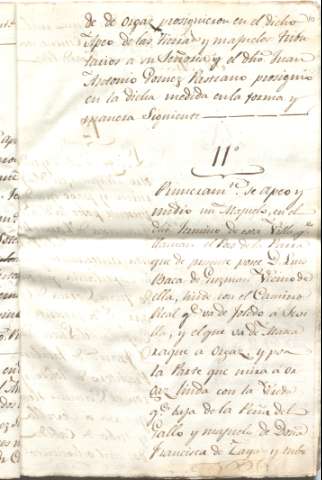 de de orgaz prosiguieron en el dicho
Apeo de las tierras y majuelos tribu
tarios a su Señoria y el dho Juan
Antonio Gomez Rossano prosiguio
en la dicha medida en la forma y
manera siguiente
11º
Primeramte se apeo y
midio un Majuelo, en el
dho termino de esta Villa qe
llaman el Pas de la
que de presente posee Dn Luis
Baca de Guzman Vecino de
ella, linda con el Camino
Real qe va de Toledo a Sevi
lla, y el que va de Masca
raque a Orgaz y por
la Parte que mira a Or
gaz linda con la Vereda
qe baja de la Peña del
Gallo y majuelo de Doña
Francisca de Zayas y tubo